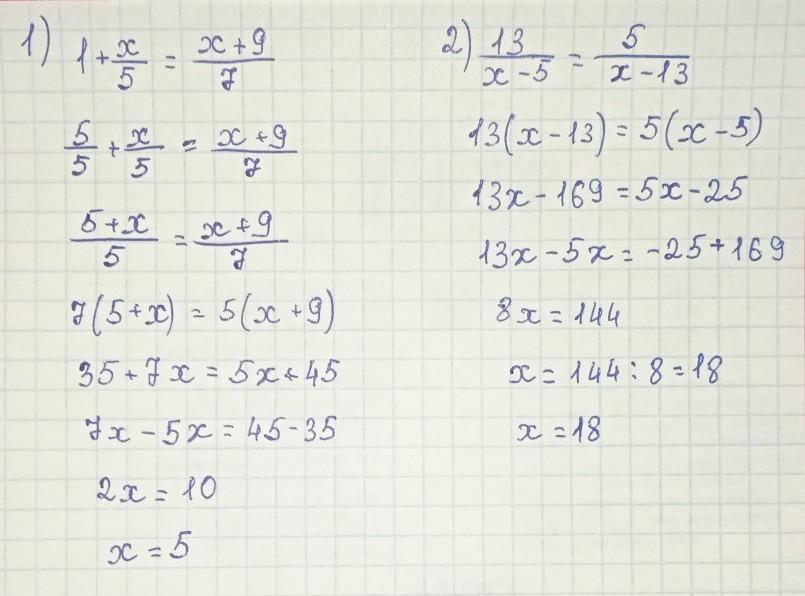 1) 1 + x/5 = (x+9)/7
5/5 + x/5 = (x+9)/7
(5+x)/5 = (x+9)/7
7(5+x) = 5(x+9)
35+7x = 5x+45
7x-5x = 45-35
2x = 10
x = 5
2) 13/(x-5) = 5/(x-13)
13(x-13) = 5(x-5)
13x-169 = 5x-25
13x-5x = -25+169
8x = 144
x = 144:8 = 18
x = 18